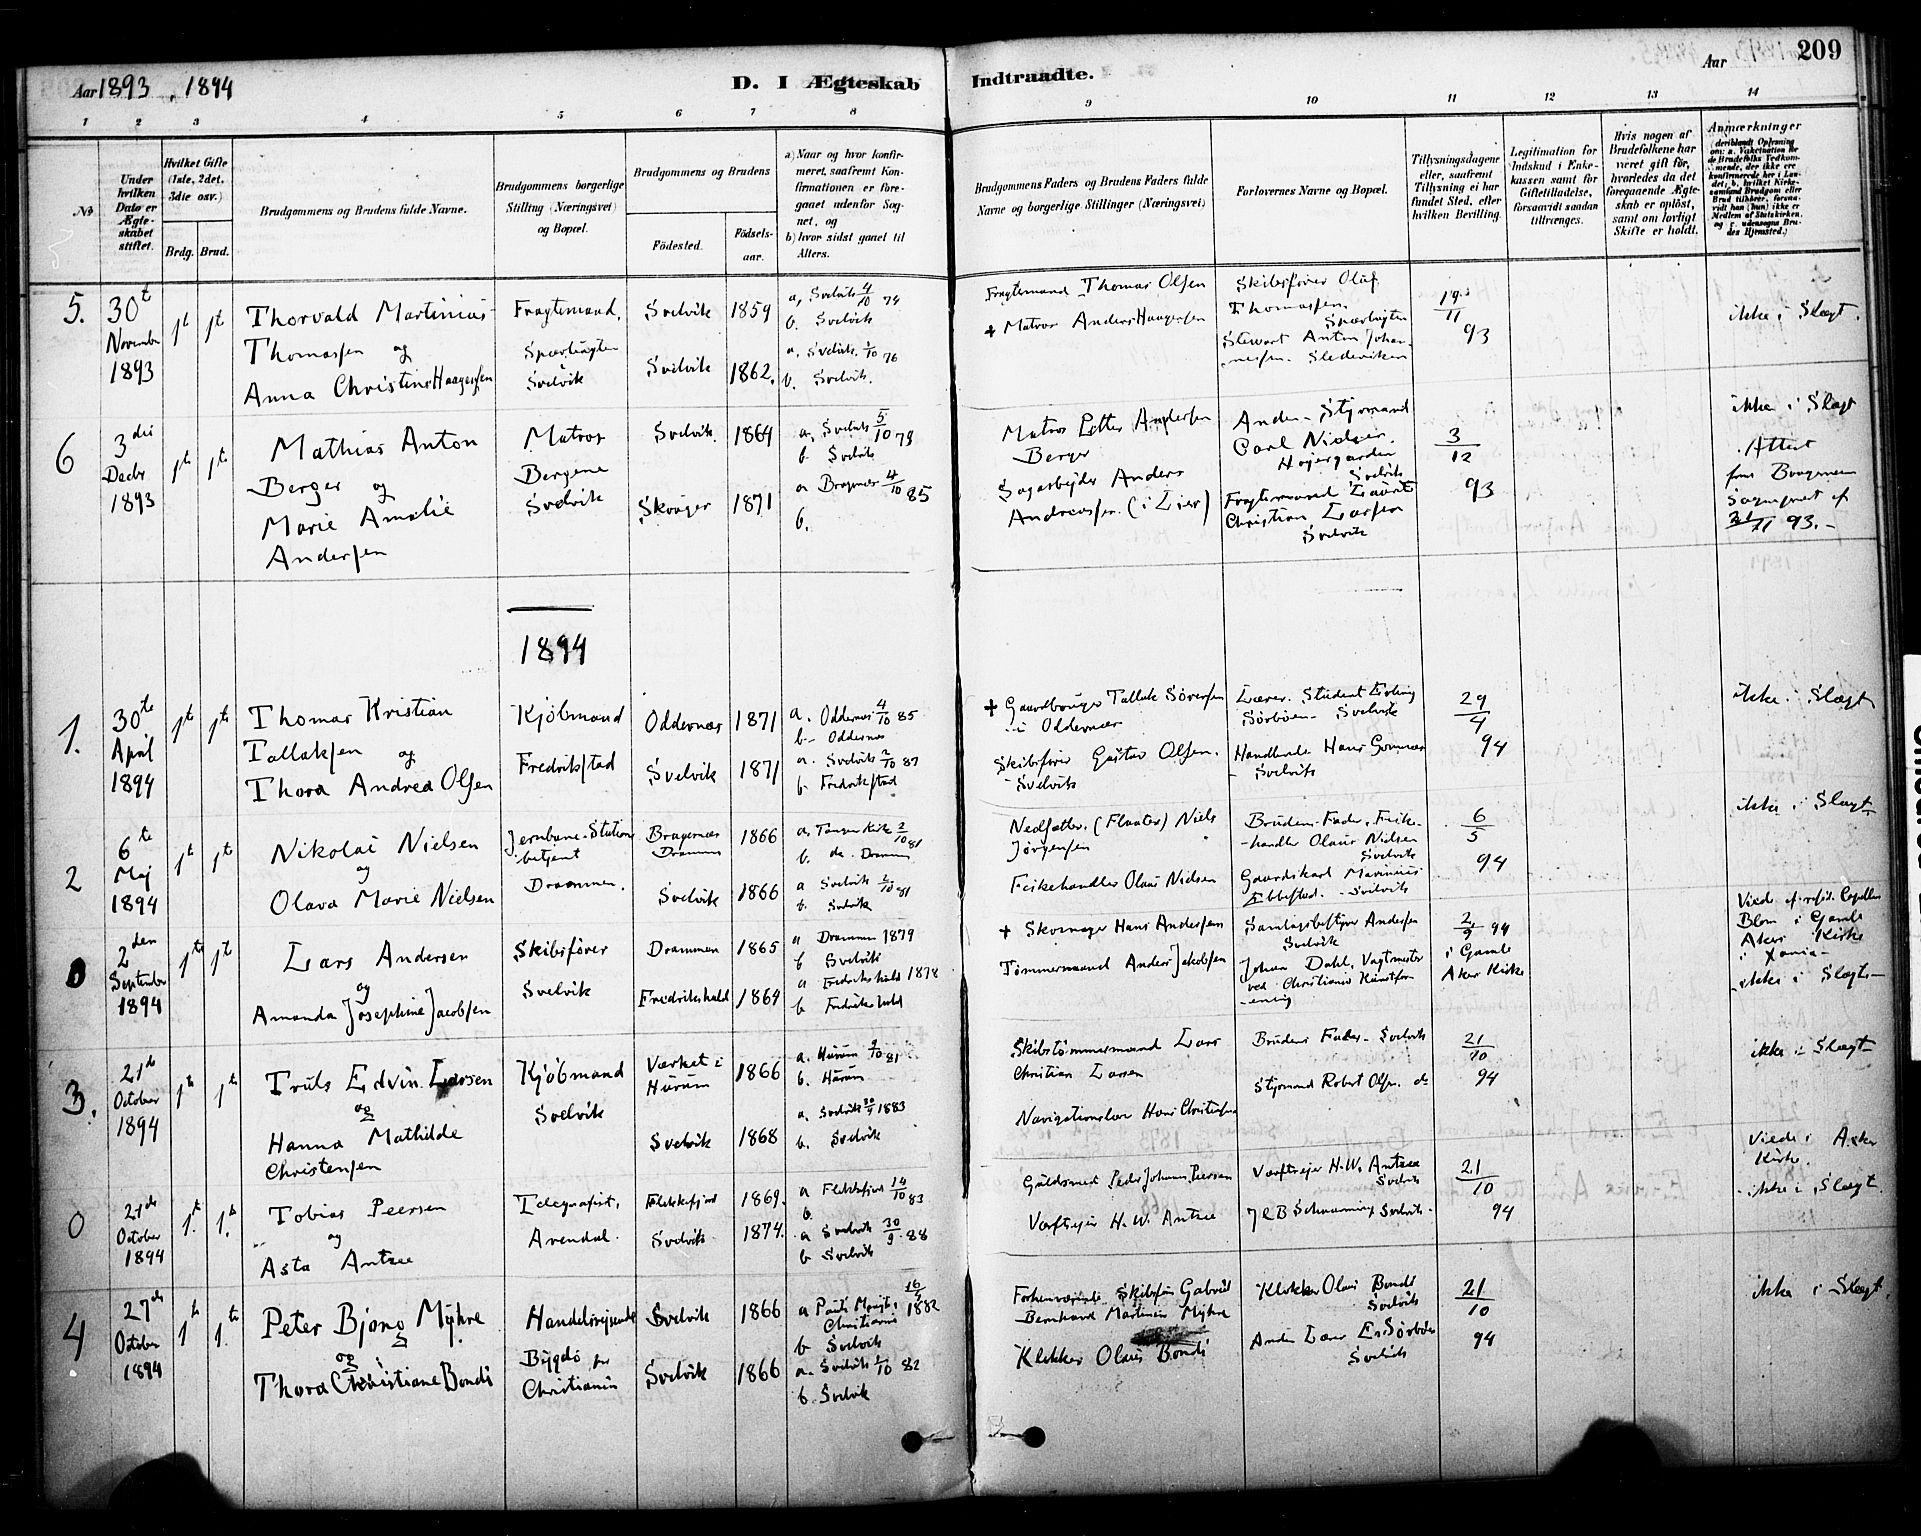 Aar 1893, 1894
D. I Ægteskab Indtraadte.
Aar 209
1 2 3 4 5 6 7 8 9 10 11 12 13 14
No
Under hvilken Dato er Ægteskabet stiftet.
Hvilket Gifte (1ste, 2det, 3die osv.)
Brdg. Brud.
Brudgommens og Brudens fulde Navne.
Brudgommens borgerlige Stilling (Næringsvei) og Bopæl.
Brudgommens og Brudens
Födested.
Födselsaar.
a) Naar og hvor konfirmeret, saafremt Konfirmationen er foregaaet udenfor Sognet, og
b) hvor sidst gaaet til Alters.
Brudgommens Faders og Brudens Faders fulde Navne og borgerlige Stillinger (Næringsvei)
Forlovernes Navne og Bopæl.
Tillysningsdagene eller, saafremt Tillysning ei har fundet Sted, efter hvilken Bevilling.
Legitimation for Indskud i Enkekassen samt for Giftetilladelse, forsaavidt saadan tiltrænges.
Hvis nogen af Brudefolkene har været gift för, hvorledes da det foregaaende Ægteskab er oplöst, samt om lovligt Skifte er holdt.
Anmærkninger
5.
30t November 1893
1t 1t
Thorvald Martinius
Thomassen og
Anna Christine Haagensen
Fragtemand,
Svelvik
Svelvik 1859
Svelvik 1862.
a, Svelvik 4/10 74
b. Svelvik
a. Svelvik. 1/10 76
b. Svelvik.
Fragtemand Thomas Olsen
+ Matros Anders Haagensen
Skibsfører Oluf
Thomassen.
Stewart Anton Johannessen.
19/11 93
ikke i Slægt.
6
3die Decbr 1893
1te 1te
Mathias Anton
Berger og
Marie Amalie
Andersen
Matros
Bergene
Svelvik
Svelvik. 1864
Skouger 1871
a, Svelvik 5/10 79
b Svelvik
a Bragenæs 4/10 85
b.
Matros Petter Andersen
Berger
Sagarbejder Anders
Andreassen. (i Lier)
Anden-Styrmand
Carl Nielsen.
Højergarden
Svelvik
Fragtemand Laurits
Christian Larsen
Svelvik
3/12 93
ikke i Slægt
Attest
fra Bragernes
Sognepræst af
11 93.-
1894
1.
30te April 1894
1te 1te
Thomas Kristian
Tallaksen og
Thora Andrea Olsen
Kjøbmand
Fredrikstad
Oddernæs 1871
Svelvik 1871
a. Oddernæs 4/10 85
b- Oddernæs
a. Svelvik 2/10 87
b- Fredrikstad
+ Gaardbruger Tallak Sörensen
i Oddernæs
Skibsfører Gustav Olsen.
- Svelvik
Lærer. Student Erling
Sörböe- Svelvik
Handlende Hans Gommæs
- Svelvik
29/4 94
ikke i Slægt
2
6te Maj 1894
1t 1te
Nikolai Nielsen
og
Olava Marie Nielsen
Jernbane-Stations
betjent
Drammen.
Bragernæs
Drammen 1866
Svelvik 1866
a, Tangen Kirke 2/10 81
b. do. Drammen
a Svelvik 2/10 81
b. Svelvik
Nedsatter. (Flaater) Niels
Jörgensen
Fiskehandler Olaus Nielsen
Brudens Fader, Fiskehandler Olaus Nielsen
Svelvik
Gaardskarl Marinius
Ebbestad. - Svelvik
6/5 94
ikke i Slægt
0
2den September 1894
1te 1t
Lars Andersen
og
Amanda Josephine Jacobsen
Skibsfører
Svelvik
Drammen 1865
Fredrikshald 1864
a Drammen 1879
b Svelvik
a Fredrikshald 1878
b Fredrikshald
+ Skomager Hans Andersen
Tømmermand Anders Jakobsen
Samlagsbestyrer Andersen
Svelvik
Johan Dahl, Vagtmester
ved Christiania Kunstforening
2/9 94
i Gamle
Aker Kirke
Viede af resid. Capellan
Blom i Gamle
Aker Kirke
i Xania-
-ikke i Slægt-
3.
21de October 1894
1te 1te
Truls Edvin Larsen
og
Hanna Mathilde
Christensen
Kjøbmand
Svelvik
Værket i
Hurum 1866
Svelvik 1868
a. Hurum 9/10 81
b. Hurum
a. Svelvik 30/9 1883
b. Svelvik
Skibstømmermand Lars
Christian Larsen
Navigationslærer Hans Christensen
Brudens Fader- Svelvik
Styrmand Robert Olsen. do
21/10 94
ikke i Slægt
0
21de October 1894
1.t 1.te
Tobias Peersen
og
Asta Antzee
Telegrafist,
Arendal.
Flekkefjord 1869.
Svelvik. 1874.
a Flekkefjord 14/10 83
b.
a Svelvik 30/9 88
b Svelvik
Guldsmed Peder Johannes Peersen
Værftsejer H. W. Antzee
Værftsejer H. W. Antzee
Svelvik
21/10 94
Viede i Asker
Kirke.
-ikke i Slægt.
4
27de October 1894
1te 1.te
Peter Bjong Myhre
og
Thora Christiane Bondi
Handelsrejsende
Bygdø pr
Christiania
Svelvik 1866
Svelvik 1866
a Pauls Menigh. 16/4 1882
Christiania
b Svelvik
a. Svelvik 1/10 82
b. Svelvik
Forhenværende Skibsfører Gabriel
Bernhard Martinius Myhre
Klokker Olaus Bondi
Klokker Olaus Bondi
Svelvik
Anden Lærer E. Sörböe
Svelvik
21/10 94
ikke i Slægt.